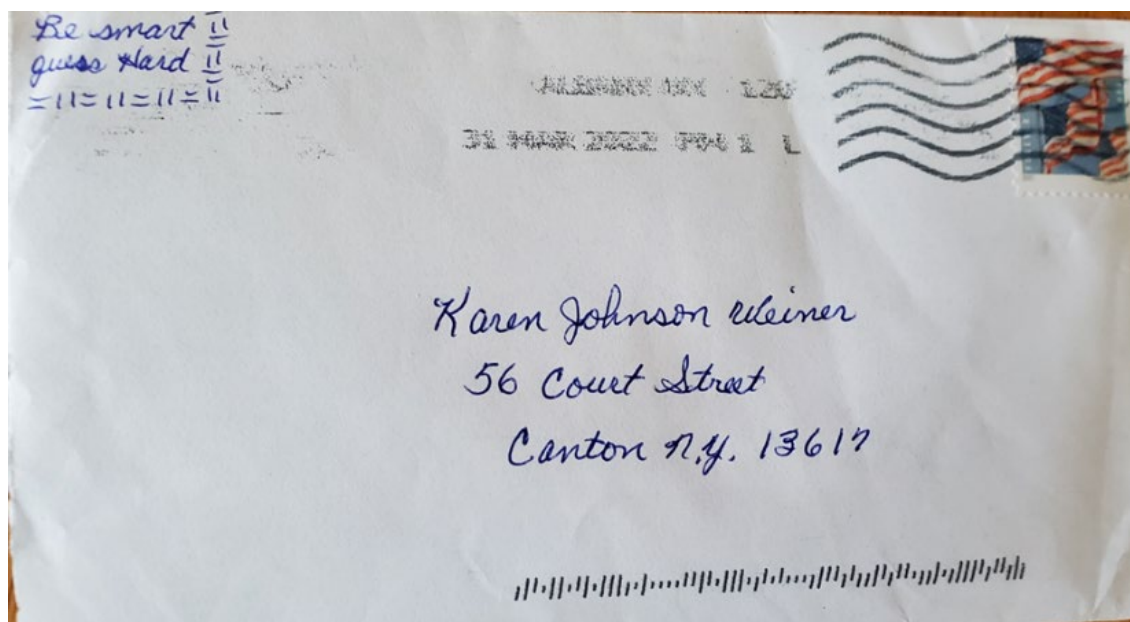 Be smart
guess Hard
ALBANY NY 120
31 MAR 2022 PM 1 L
Karen Johnson Weiner
56 Court Street
Canton N.Y. 13617